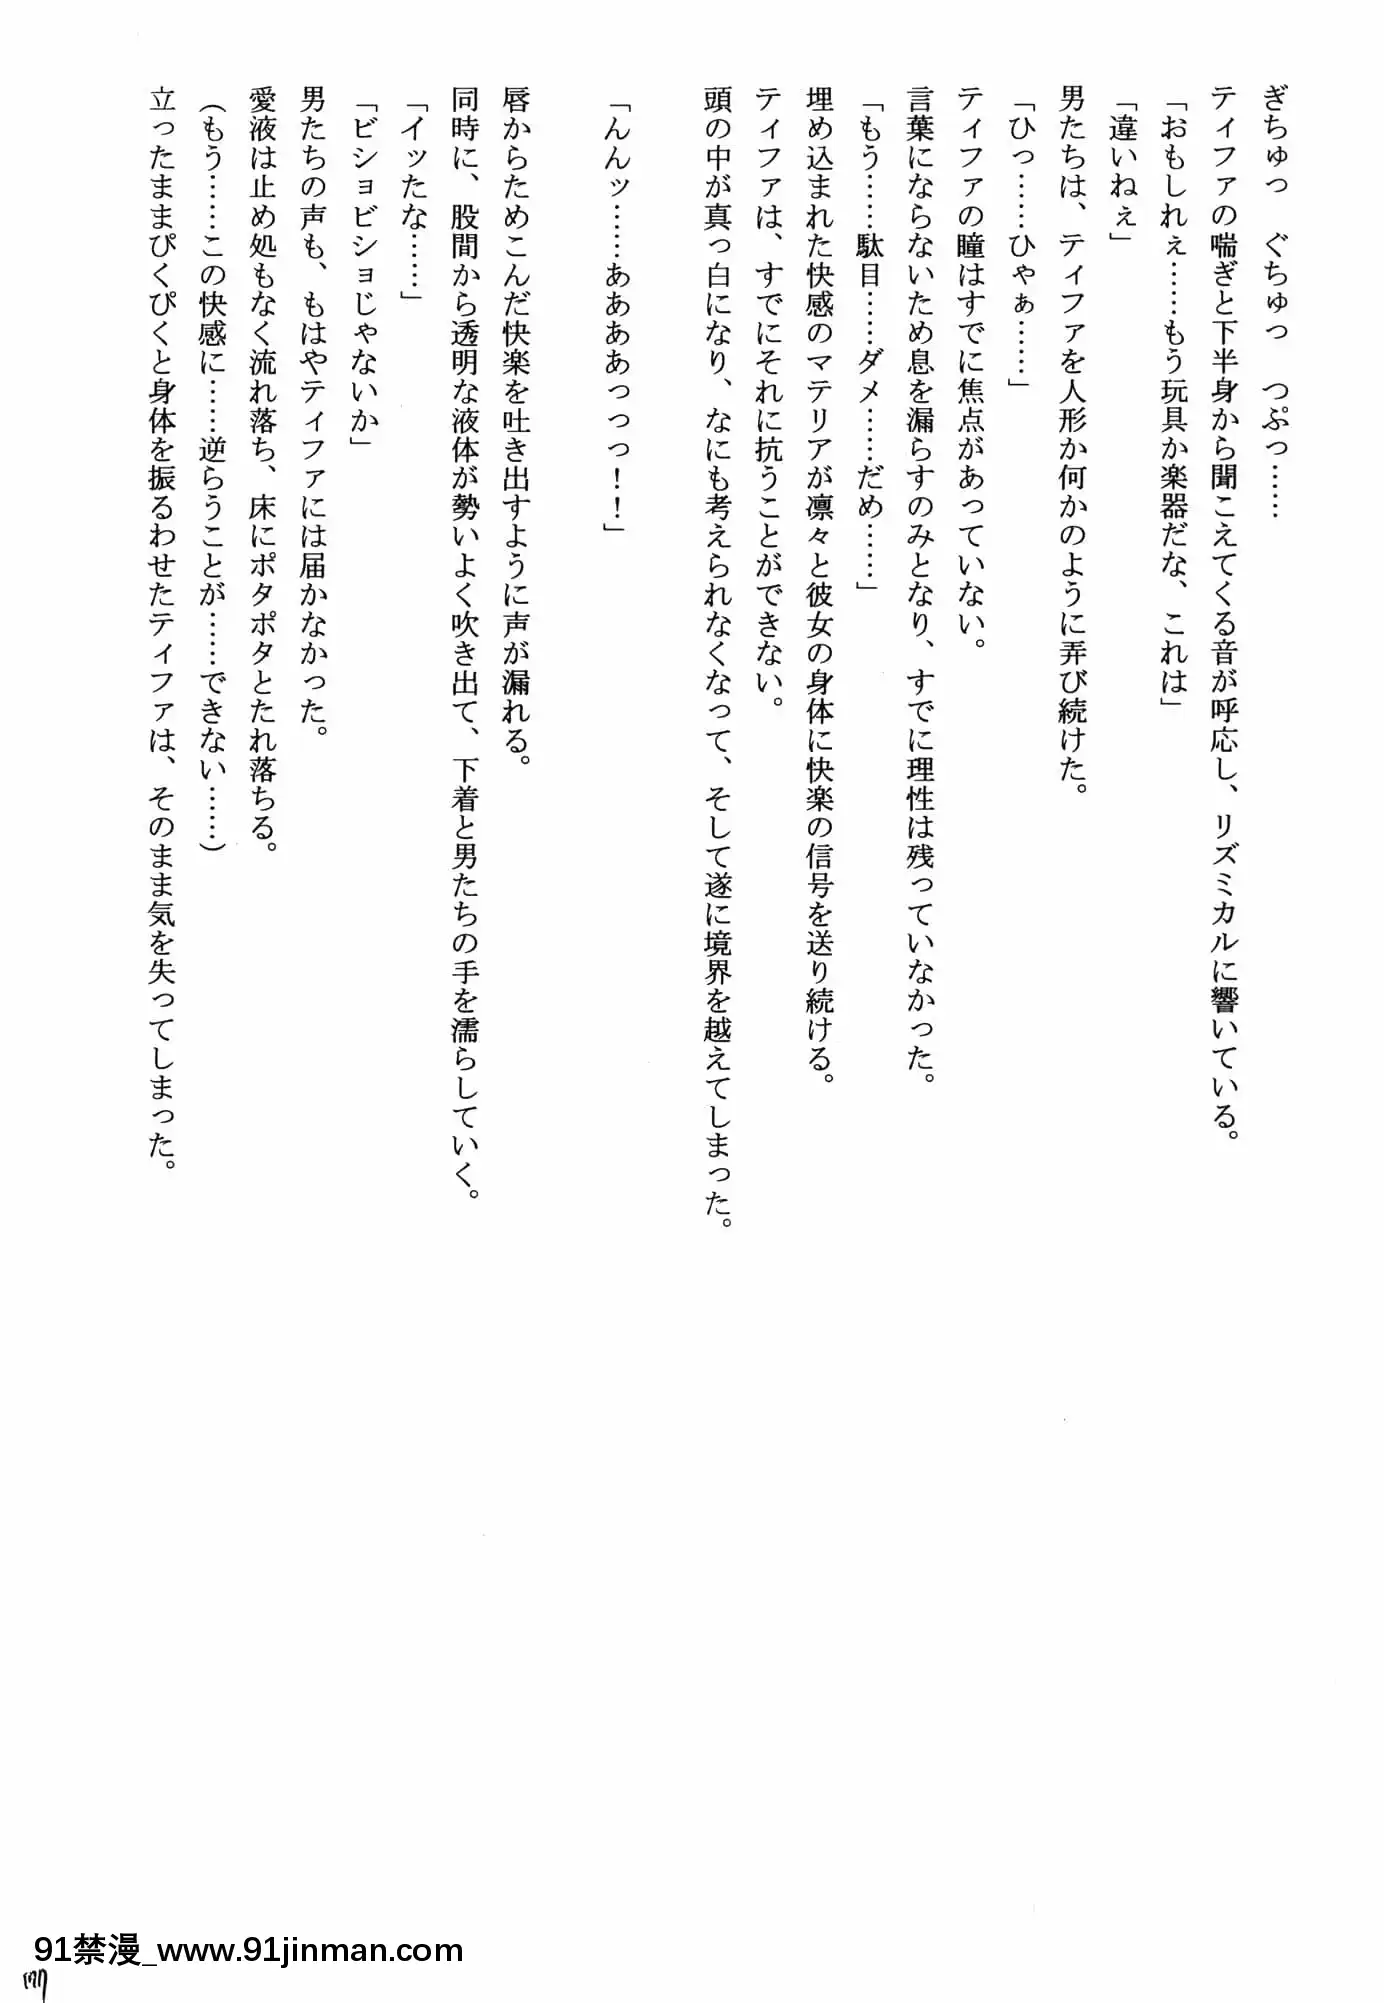 ぎちゅっ　ぐちゅっ　つぷっ……
ティファの喘ぎと下半身から聞こえてくる音が呼応し、リズミカルに響いている。
「おもしれぇ……もう玩具か楽器だな、これは」
「違いねぇ」
男たちは、ティファを人形か何かのように弄び続けた。
「ひっ……ひゃぁ……」
ティファの瞳はすでに焦点があっていない。
言葉にならないため息を漏らすのみとなり、すでに理性は残っていなかった。
「もう……駄目……ダメ……だめ……」
埋め込まれた快感のマテリアが凛々と彼女の身体に快楽の信号を送り続ける。
ティファは、すでにそれに抗うことができない。
頭の中が真っ白になり、なにも考えられなくなって、そして遂に境界を越えてしまった。
「んんッ……ああああっっっ！！」
唇からためこんだ快楽を吐き出すように声が漏れる。
同時に、股間から透明な液体が勢いよく吹き出て、下着と男たちの手を濡らしていく。
「イッたな……」
「ビショビショじゃないか」
男たちの声も、もはやティファには届かなかった。
愛液は止め処もなく流れ落ち、床にポタポタとたれ落ちる。
（もう……この快感に……逆らうことが……できない……）
立ったままぴくぴくと身体を振るわせたティファは、そのまま気を失ってしまった。
91禁漫_www.91jinman.com